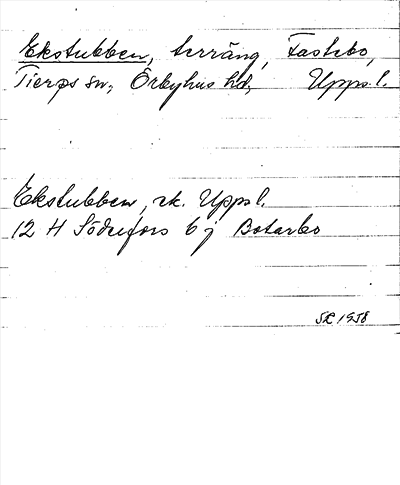 Ekstubben, terräng, Fastebo,
Tierps sn, Örbyhus hd, Uppsl.
Ekstubben, ek. Uppsl.
12 H Söderfors 6 j Botarbo
SK 1958